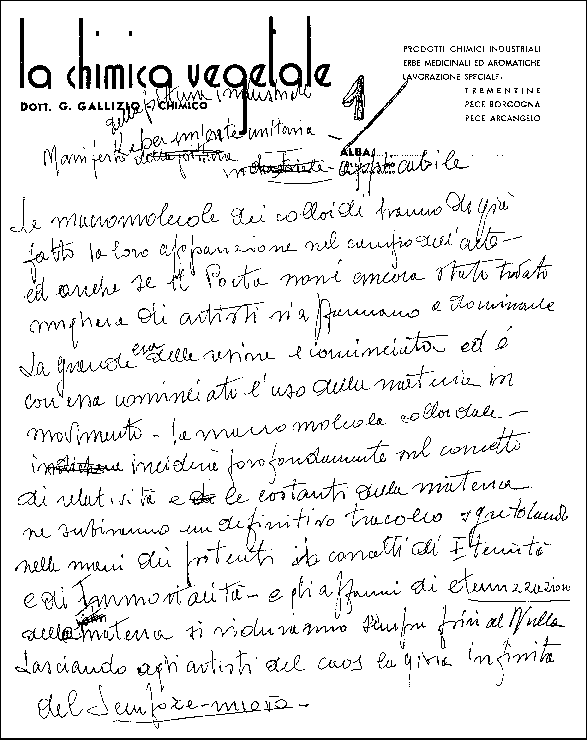 la chimica vegetale
DOTT. G. GALLIZIO CHIMICO
PRODOTTI CHIMICI INDUSTRIALI
ERBE MEDICINALI ED AROMATICHE
LAVORAZIONE SPECIALE:
TREMENTINE
PECE BORGOGNA
PECE ARCANGELO
1
ALBA
della pittura industriale
e per un'arte unitaria
Manifesto della pittura
industriale applicabile
Le macromolecole dei colloidi hanno di già
fatto la loro apparizione nel campo dell'arte –
ed anche se il Poeta non è ancora stato trovato
migliaia di artisti si affannano a dominarle
La grande era delle resine è cominciata ed è
con essa cominciato l'uso della materia in
movimento – La macromolecola colloidale –
inciderà profondamente nel concetto
di relatività e le costanti della materia
ne subiranno un definitivo tracollo sgretolando
nelle mani dei potenti i concetti di Eternità
e di Immortalità – e gli affanni di eternizzazione
della materia si ridurranno sempre più al Nulla
Lasciando agli artisti del caos la gioia infinita
del Sempre-nuovo –